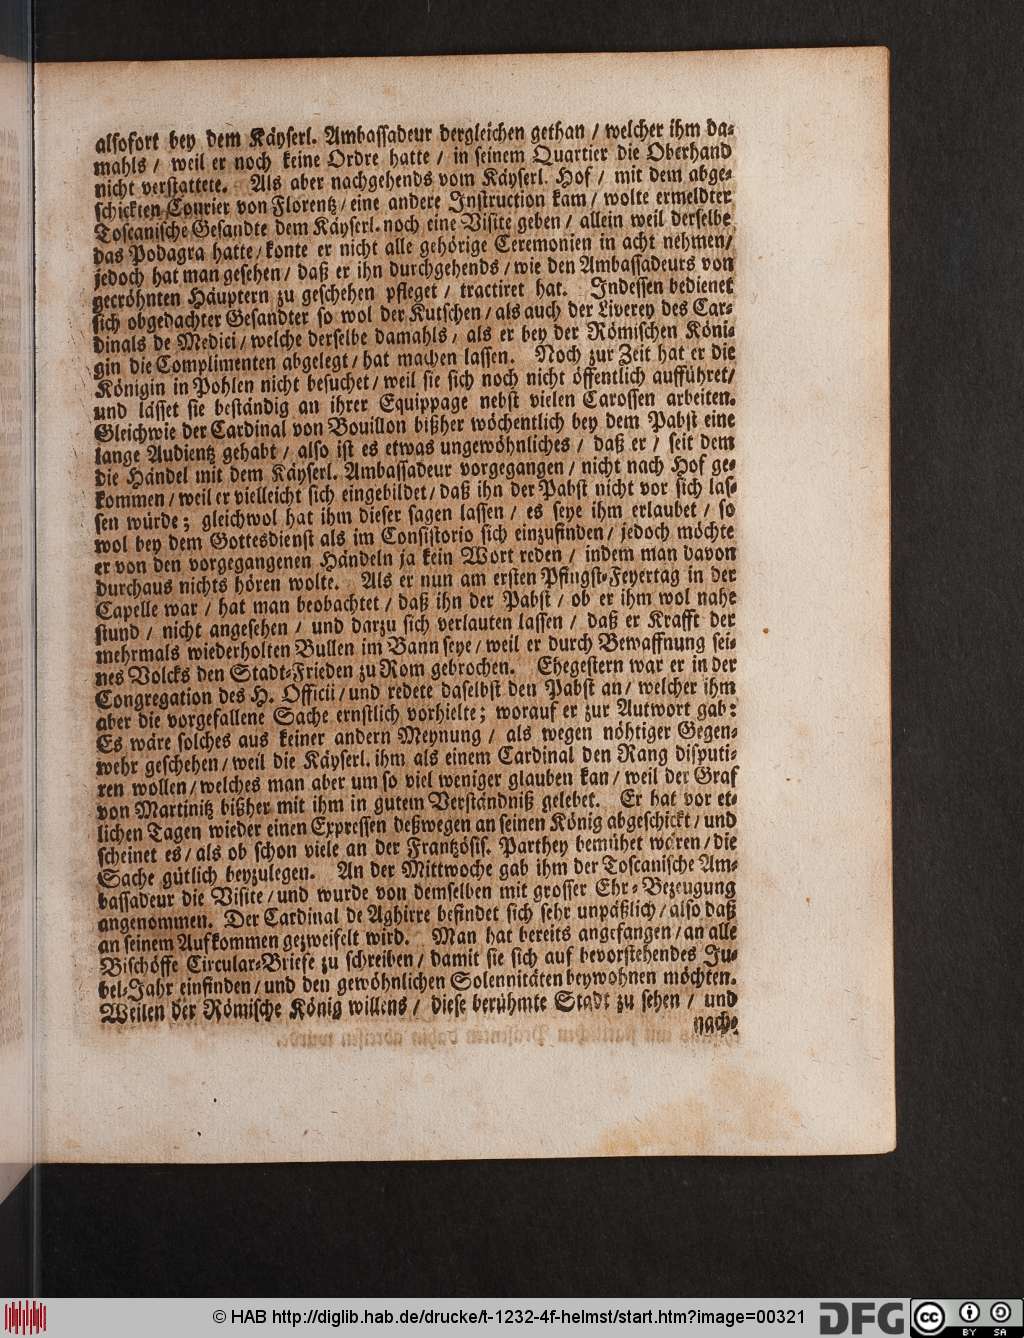 alsofort bey dem Käyserl. Ambassadeur dergleichen gethan / welcher ihm da-
mahls / weil er noch keine Ordre hatte / in seinem Quartier die Oberhand
nicht verstattete. Als aber nachgehends vom Käyserl. Hof / mit dem abge-
schickten Courier von Florentz / eine andere Instruction kam / wolte ermeldter
Toscanische Gesandte dem Käyserl. noch eine Visite geben / allein weil derselbe
das Podagra hatte / konte er nicht alle gehörige Ceremonien in acht nehmen /
jedoch hat man gesehen / daß er ihn durchgehends / wie den Ambassadeurs von
gecröhnten Häuptern zu geschehen pfleget / tractiret hat. Indessen bedienet
sich obgedachter Gesandter so wol der Kutschen / als auch der Liverey des Car-
dinals de Medici / welche derselbe damahls / als er bey der Römischen Köni-
gin die Complimenten abgelegt / hat machen lassen. Noch zur Zeit hat er die
Königin in Pohlen nicht besuchet / weil sie sich noch nicht öffentlich aufführet /
und lässet sie beständig an ihrer Equippage nebst vielen Carossen arbeiten.
Gleichwie der Cardinal von Bouillon bißher wöchentlich bey dem Pabst eine
lange Audientz gehabt / also ist es etwas ungewöhnliches / daß er / seit dem
die Händel mit dem Käyserl. Ambassadeur vorgegangen / nicht nach Hof ge-
kommen / weil er vielleicht sich eingebildet / daß ihn der Pabst nicht vor sich las-
sen würde; gleichwol hat ihm dieser sagen lassen / es seye ihm erlaubet / so
wol bey dem Gottesdienst als im Consistorio sich einzufinden / jedoch möchte
er von den vorgegangenen Händeln ja kein Wort reden / indem man davon
durchaus nichts hören wolte. Als er nun am ersten Pfingst-Feyertag in der
Capelle war / hat man beobachtet / daß ihn der Pabst / ob er ihm wol nahe
stund / nicht angesehen / und darzu sich verlauten lassen / daß er Krafft der
mehrmals wiederholten Bullen im Bann seye / weil er durch Bewaffnung sei-
nes Volcks den Stadt-Frieden zu Rom gebrochen. Ehegestern war er in der
Congregation des H. Officii / und redete daselbst den Pabst an / welcher ihm
aber die vorgefallene Sache ernstlich vorhielte; worauf er zur Antwort gab:
Es wäre solches aus keiner andern Meynung / als wegen nöhtiger Gegen-
wehr geschehen / weil die Käyserl. ihm als einem Cardinal den Rang disputi-
ren wollen / welches man aber um so viel weniger glauben kan / weil der Graf
von Martinitz bißher mit ihm in gutem Verständniß gelebet. Er hat vor et-
lichen Tagen wieder einen Expressen deßwegen an seinen König abgeschickt / und
scheinet es / als ob schon viele an der Frantzösis. Parthey bemühet wären / die
Sache gütlich beyzulegen. An der Mittwoche gab ihm der Toscanische Am-
bassadeur die Visite / und wurde von demselben mit grosser Ehr-Bezeugung
angenommen. Der Cardinal de Aghirre befindet sich sehr unpäßlich / also daß
an seinem Aufkommen gezweifelt wird. Man hat bereits angefangen / an alle
Bischöffe Circular-Briefe zu schreiben / damit sie sich auf bevorstehendes Ju-
bel-Jahr einfinden / und den gewöhnlichen Solennitäten beywohnen möchten.
Weilen der Römische König willens / diese berühmte Stadt zu sehen / und
nach-
© HAB http://diglib.hab.de/drucke/t-1232-4f-helmst/start.htm?image=00321
DFG
cc BY SA